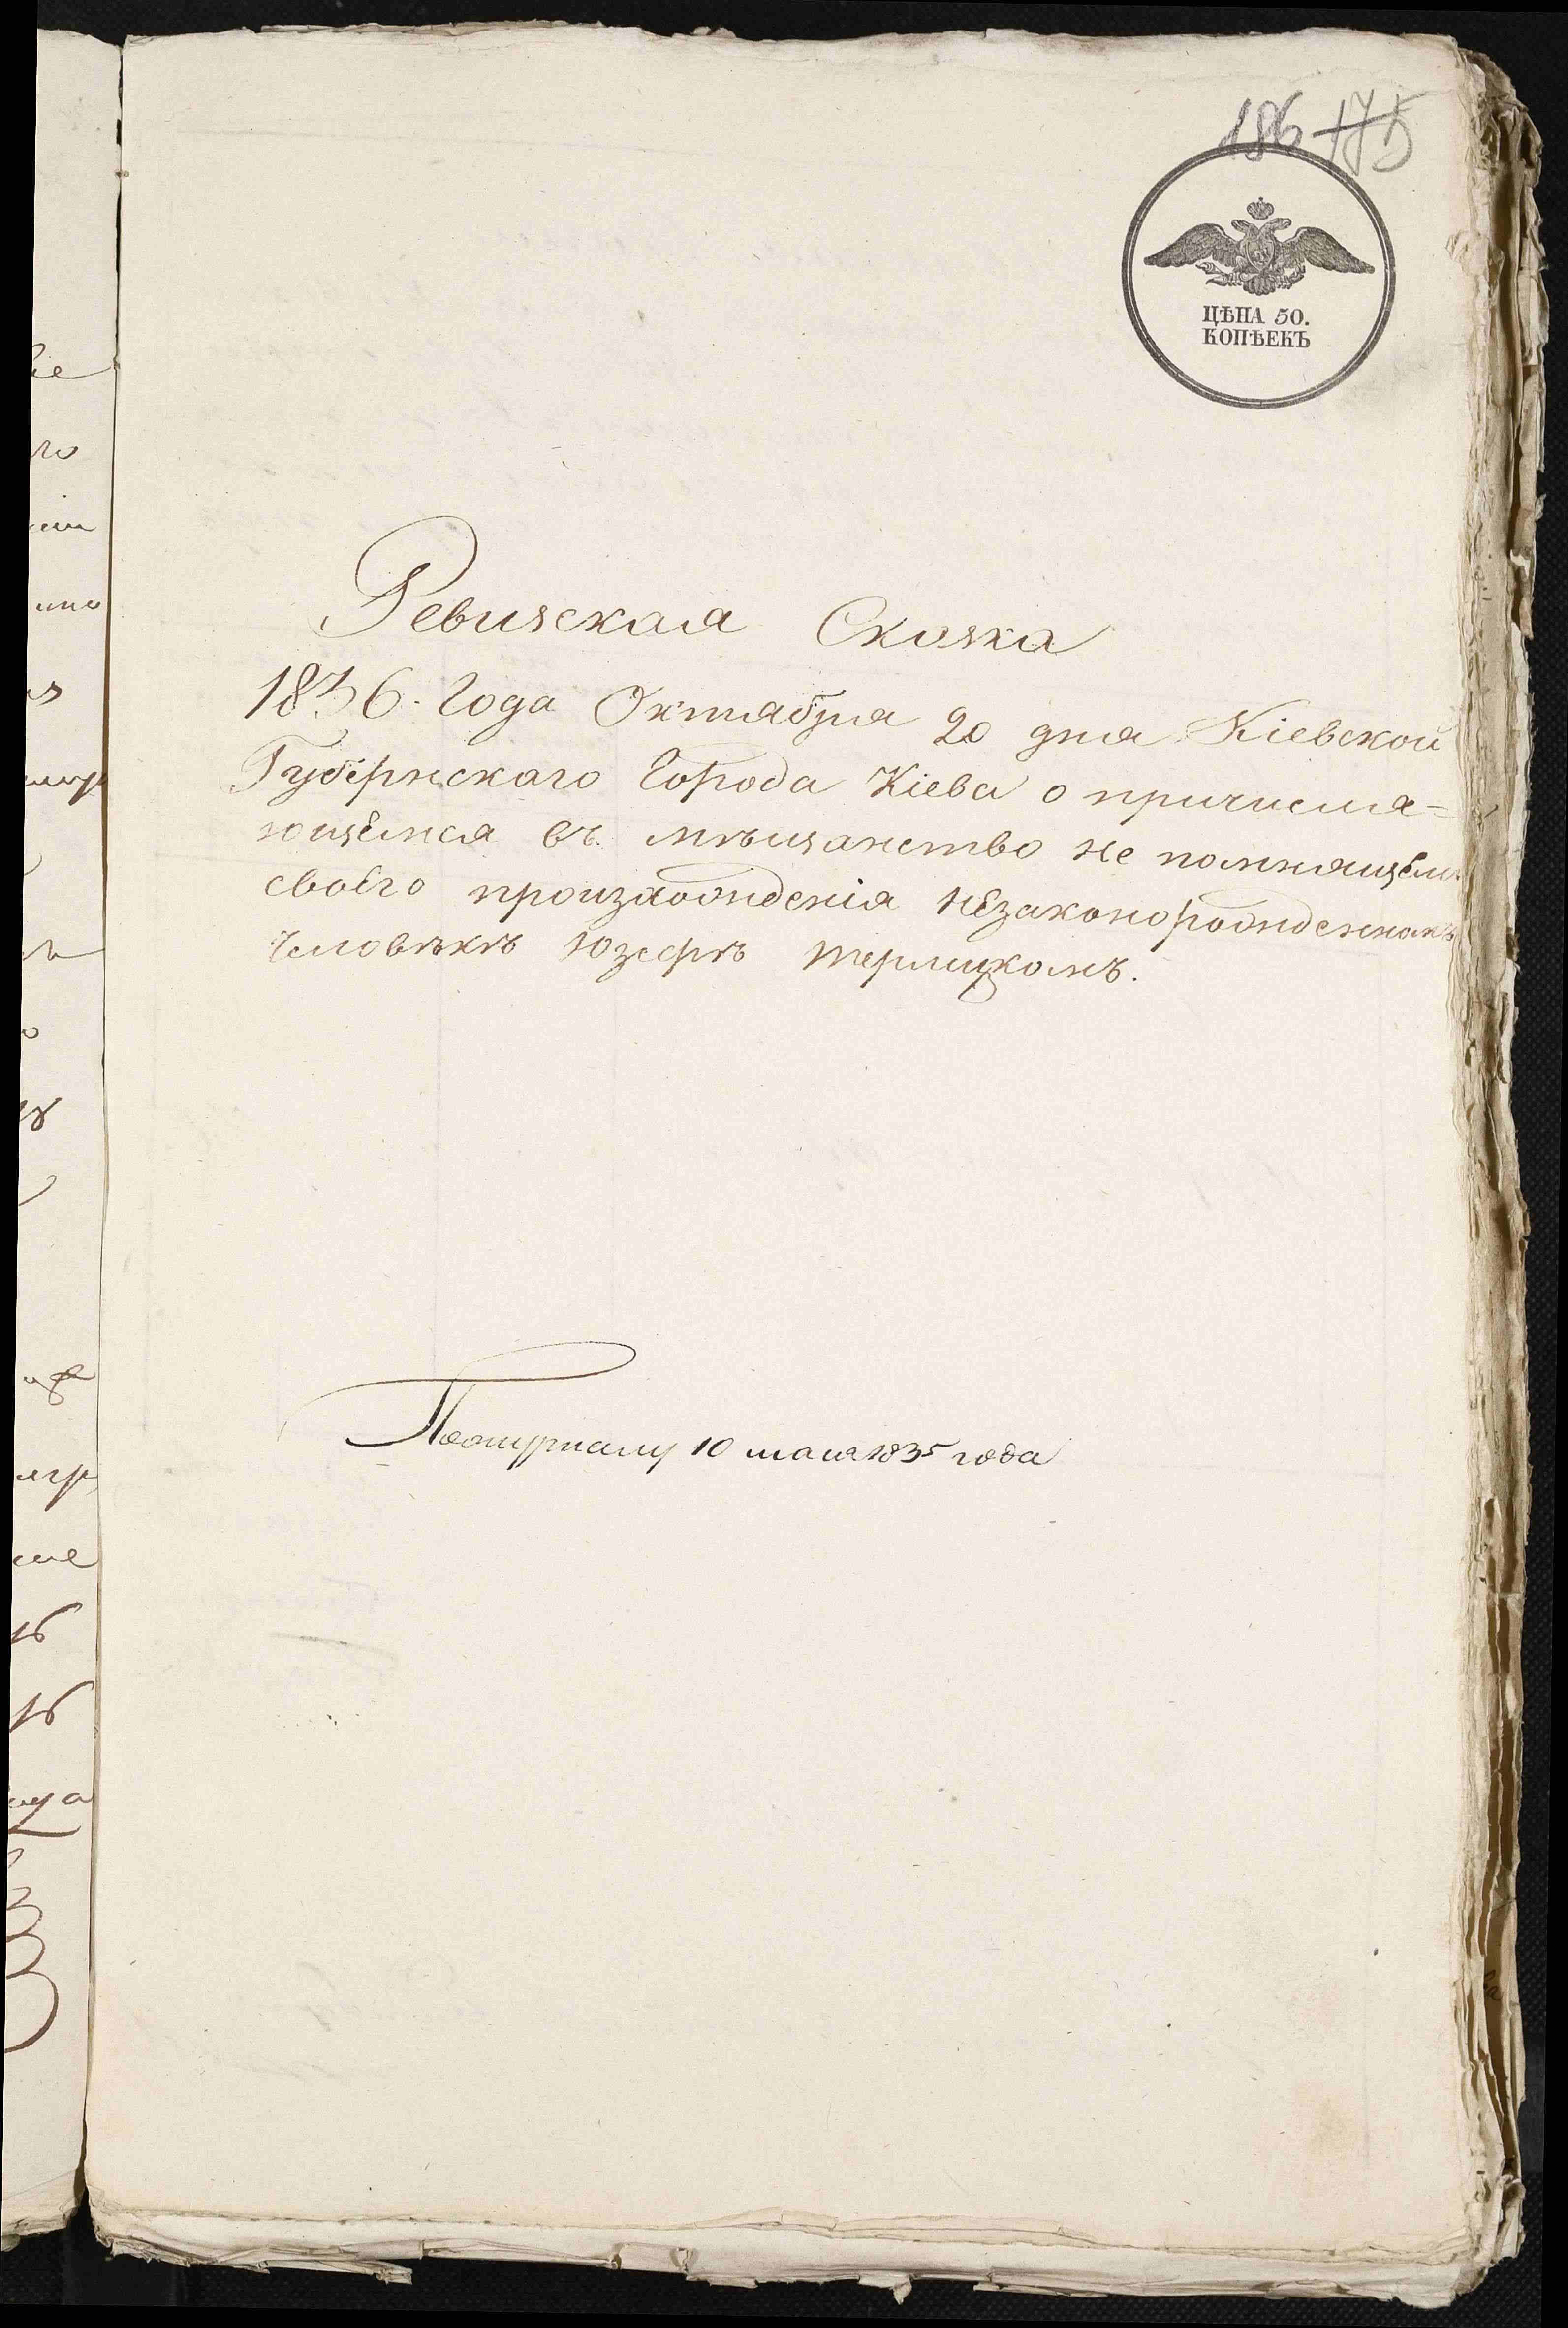 186 175
ЦѢНА 50.
КОПѢЕКЪ
Ревизская Сказка
1836. Года Октября 20 дня Кіевской
Губернскаго Города Кіева о причисля=
ющемся въ мѣщанство не помнящемъ
своего произхожденія незаконорожденномъ
человѣкѣ Юзефѣ Терлицкомъ.
По журналу 10 мая 1835 года